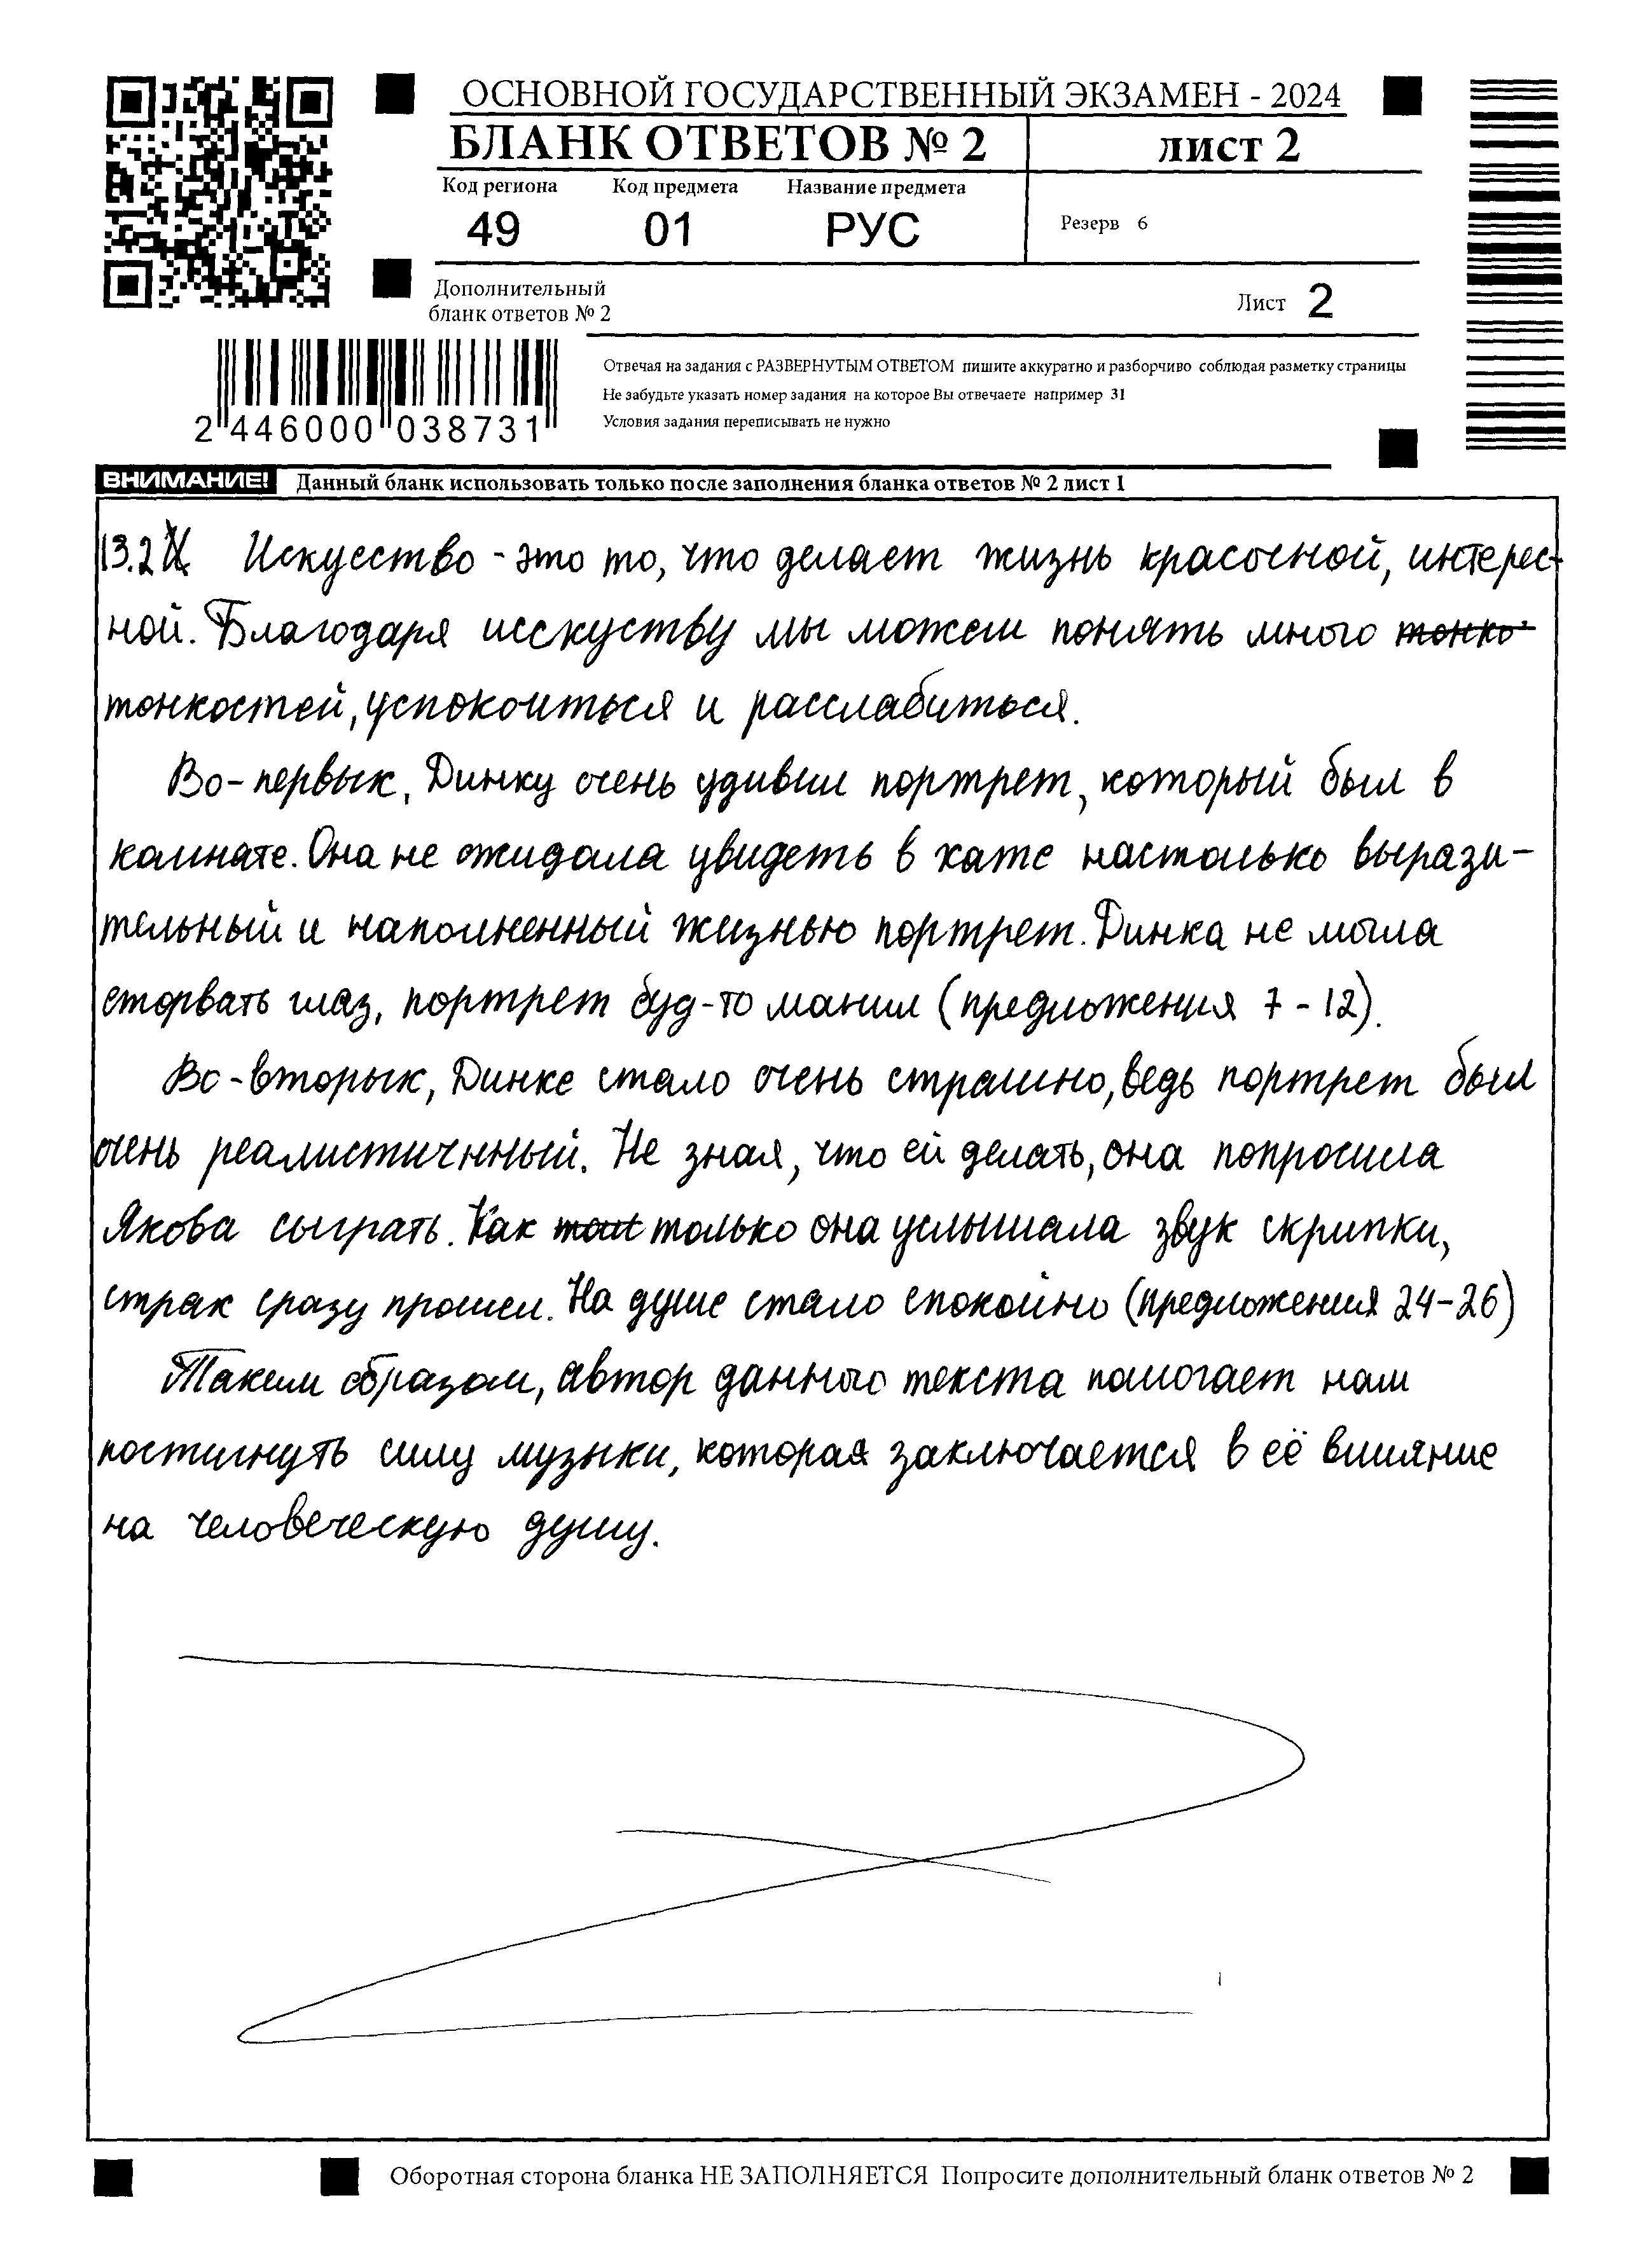 ОСНОВНОЙ ГОСУДАРСТВЕННЫЙ ЭКЗАМЕН - 2024
БЛАНК ОТВЕТОВ № 2
лист 2
Код региона Код предмета Название предмета
49 01 РУС
Резерв 6
Дополнительный
бланк ответов № 2
Лист 2
Отвечая на задания с РАЗВЕРНУТЫМ ОТВЕТОМ пишите аккуратно и разборчиво соблюдая разметку страницы
Не забудьте указать номер задания на которое Вы отвечаете например 31
Условия задания переписывать не нужно
2 446000 038731
ВНИМАНИЕ! Данный бланк использовать только после заполнения бланка ответов № 2 лист 1
13.2 Искусство - это то, что делает жизнь красочной, интерес-
ной. Благодаря исскуству мы можем понять много тонко-
тонкостей, успокоиться и расслабиться.
Во-первых, Динку очень удивил портрет, который был в
комнате. Она не ожидала увидеть в хате настолько вырази-
тельный и наполненный жизнью портрет. Динка не могла
оторвать глаз, портрет буд-то манил (предложения 7-12).
Во-вторых, Динке стало очень страшно, ведь портрет был
очень реалистичнный. Не зная, что ей делать, она попросила
Якова сыграть. Как только она услышала звук скрипки,
страх сразу прошел. На душе стало спокойно (предложения 24-26)
Таким образом, автор данного текста помогает нам
постигнуть силу музыки, которая заключается в её влияние
на человеческую душу.
Оборотная сторона бланка НЕ ЗАПОЛНЯЕТСЯ Попросите дополнительный бланк ответов № 2